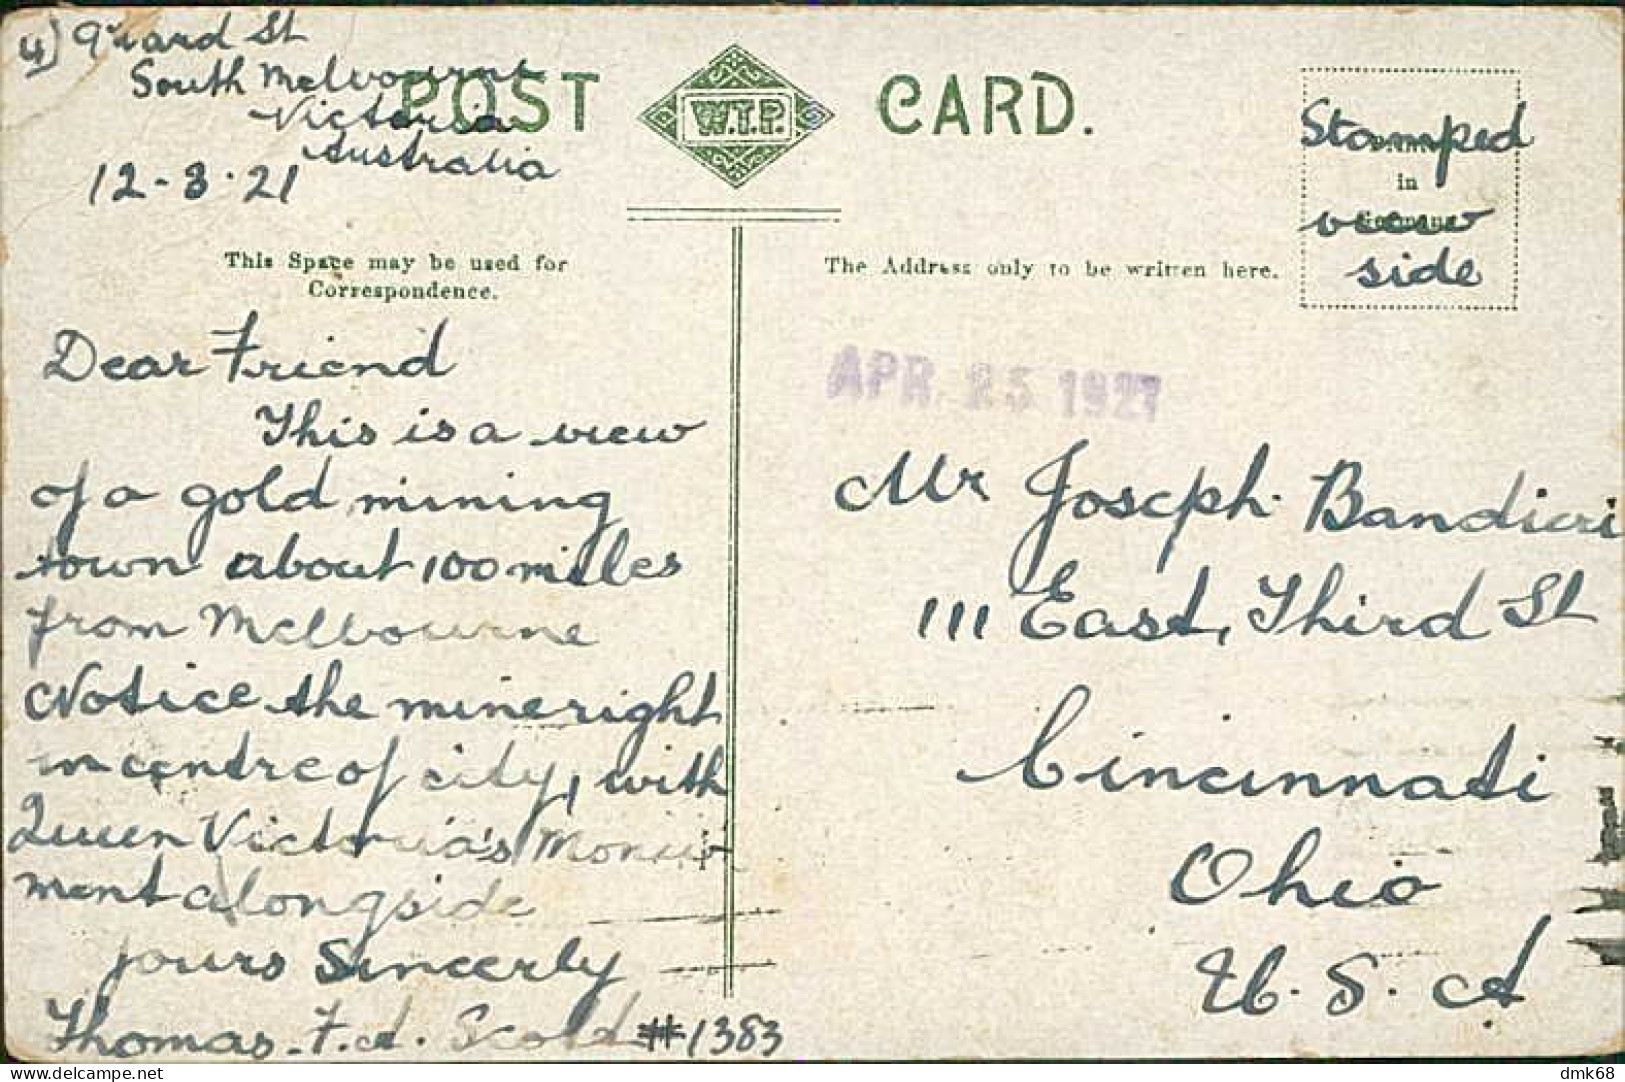 South Melbourne
Victoria
Australia
12-3-21
POST CARD.
W.T.P.
Stamped
in
view
side
This Space may be used for
Correspondence.
The Address only to be written here.
Dear Friend
This is a view
of a gold mining
town about 100 miles
from Melbourne
Notice the mine right
in centre of city, with
Queen Victoria's Monu
ment alongside
yours Sincerly
Thomas. F. A. #1383
APR. 25 1921
Mr Joseph Bandieri
111 East, Third St
Cincinnati
Ohio
U. S. A
www.delcampe.net
dmk68